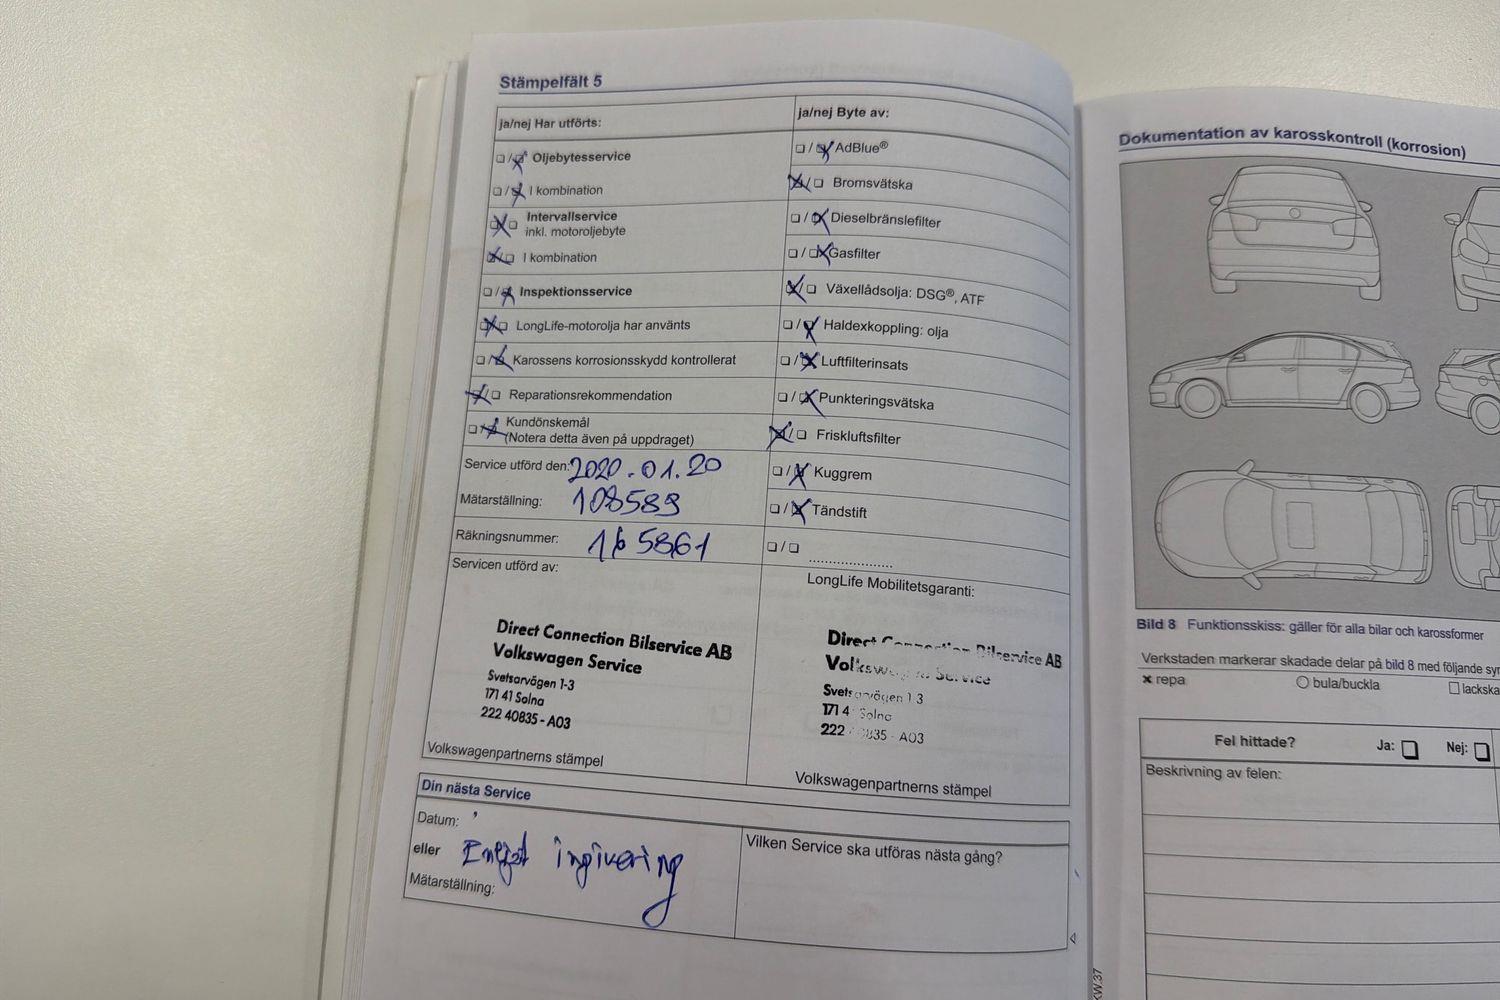 Stämpelfält 5
ja/nej Har utförts:
Oljebytesservice
I kombination
Intervallservice
inkl. motoroljebyte
I kombination
Inspektionsservice
LongLife-motorolja har använts
Karossens korrosionsskydd kontrollerat
Reparationsrekommendation
Kundönskemål
(Notera detta även på uppdraget)
Service utförd den: 2020.01.20
Mätarställning: 108589
Räkningsnummer: 165861
Servicen utförd av:
Direct Connection Bilservice AB
Volkswagen Service
Svetsarvägen 1-3
171 41 Solna
222 40835 - A03
Volkswagenpartnerns stämpel
ja/nej Byte av:
AdBlue®
Bromsvätska
Dieselbränslefilter
Gasfilter
Växellådsolja: DSG®, ATF
Haldexkoppling: olja
Luftfilterinsats
Punkteringsvätska
Friskluftsfilter
Kuggrem
Tändstift
LongLife Mobilitetsgaranti:
Direct Connection Bilservice AB
Volkswagen Service
Svetsarvägen 1-3
171 41 Solna
222 40835 - A03
Volkswagenpartnerns stämpel
Din nästa Service
Datum:
eller Enligt ingivering
Mätarställning:
Vilken Service ska utföras nästa gång?
Dokumentation av karosskontroll (korrosion)
Bild 8 Funktionsskiss: gäller för alla bilar och karossformer
Verkstaden markerar skadade delar på bild 8 med följande
repa
bula/buckla
Fel hittade? Ja: Nej:
Beskrivning av felen: